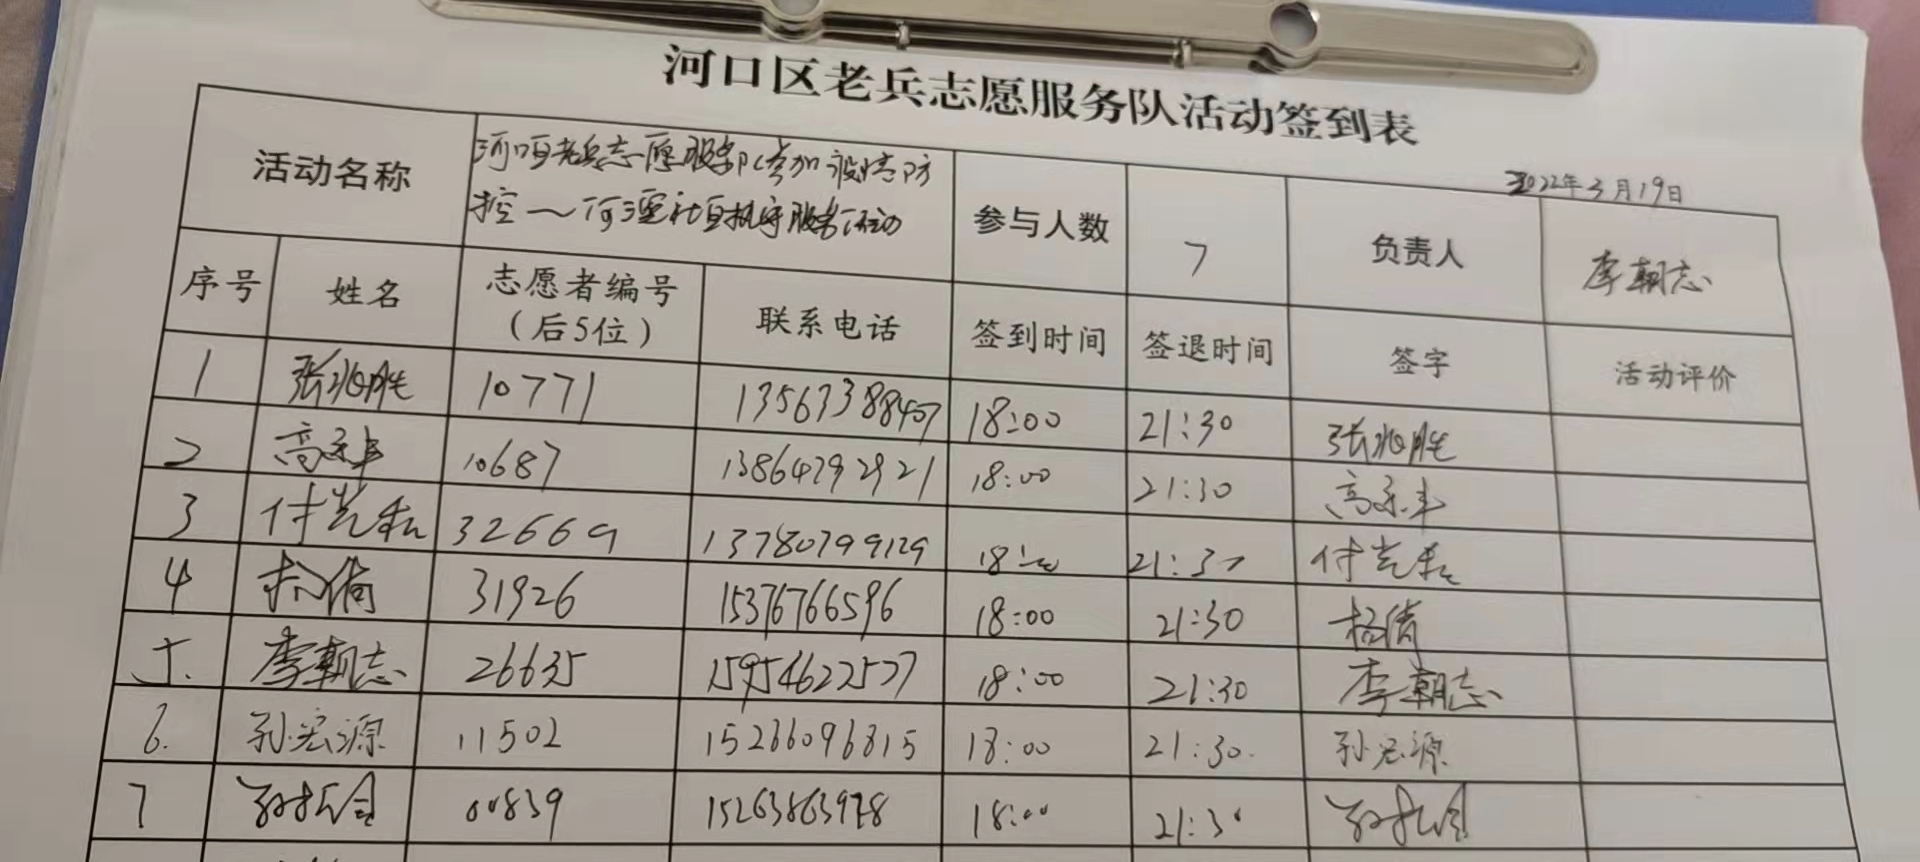 河口区老兵志愿服务队活动签到表
2022年3月19日
活动名称 河口区老兵志愿服务队参加疫情防 参与人数 7 负责人 李朝志
控一河滨社区执守服务活动
序号 姓名 志愿者编号 联系电话 签到时间 签退时间 签字 活动评价
（后5位）
1 张兆胜 10771 13563388407 18:00 21:30 张兆胜
2 高永丰 10687 13864792921 18:00 21:30 高永丰
3 付光和 32669 13780799129 18:00 21:30 付光和
4 杨倩 31926 15376766596 18:00 21:30 杨倩
五. 李朝志 26635 15954622527 18:00 21:30 李朝志
6. 孙宏源 11502 15266096815 18:00 21:30. 孙宏源
7 00839 18:00 21:30